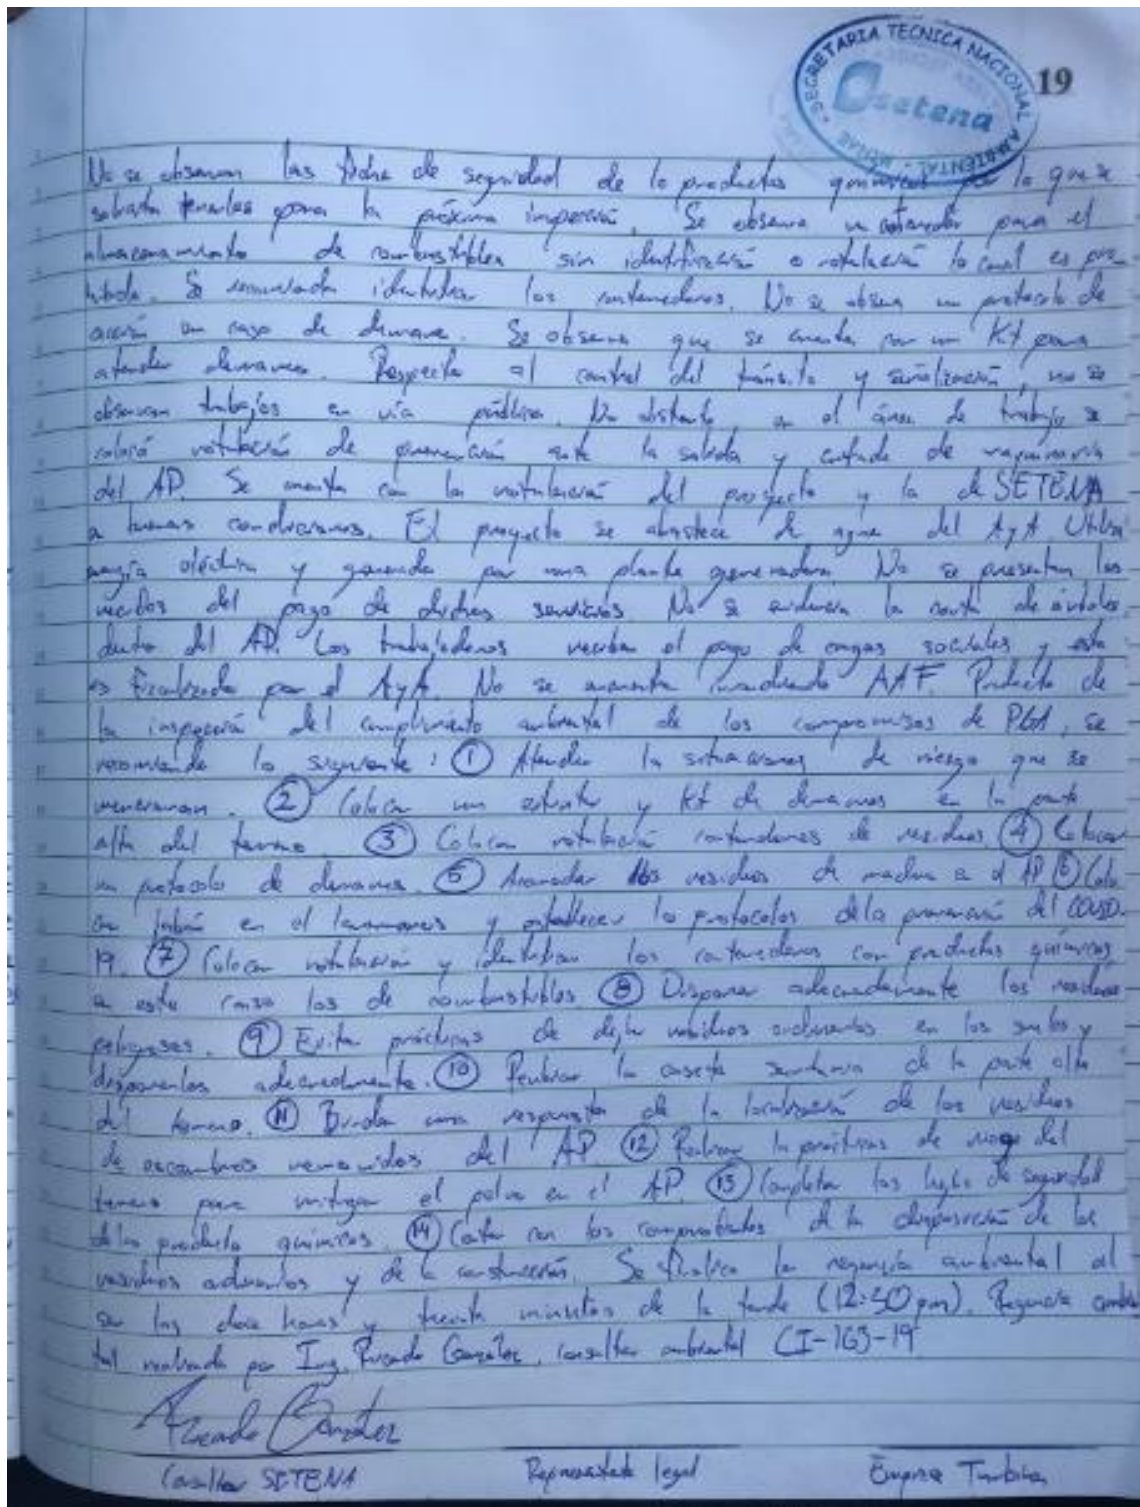 SECRETARIA TECNICA NACIONAL AMBIENTAL - MINAE
setena
19
No se observan las ficha de seguridad de lo productos químicos por lo que se
solicita tenerlas para la próxima inspección. Se observa un contenedor para el
almacenamiento de combustibles sin identificación o rotulación lo cual es pro-
hibido. Se recomienda identificar los contenedores. No se observa un protocolo de
acción en caso de derrame. Se observa que se cuenta con un Kit para
atender derrames. Respecto al control del tránsito y señalización, no se
observan trabajos en vía pública. No obstante, en el área de trabajo se
colocó rotulación de prevención ante la salida y entrada de maquinaria
del AP. Se cuenta con la rotulación del proyecto y la de SETENA
a buenas condiciones. El proyecto se abastece de agua del AyA. Utiliza
energía eléctrica y generada por una planta generadora. No se presentan los
recibos del pago de dichos servicios. No se evidencia la corta de árboles
dentro del AP. Los trabajadores reciben el pago de cargas sociales y esto
es fiscalizado por el AyA. No se aumenta AAF. Producto de
la inspección del cumplimiento ambiental de los compromisos de PGA, se
recomienda lo siguiente: ① Atender la situaciones de riesgo que se
mencionan. ② Colocar un extintor y kit de derrames en la parte
alta del terreno. ③ Colocar rotulación contenedores de residuos ④ Colocar
un protocolo de derrames. ⑤ Acomodar los residuos de madera en el AP ⑥ Colo
car jabón en el lavamanos y establecer lo protocolos de la prevención del COVID-
19. ⑦ Colocar rotulación y identificar los contenedores con productos químicos
en este caso los de combustibles ⑧ Disponer adecuadamente los residuos
peligrosos. ⑨ Evitar prácticas de dejar residuos ordinarios en los suelos y
disponerlos adecuadamente. ⑩ Reubicar la caseta sanitaria de la parte alta
del terreno. ⑪ Brindar una respuesta de la localización de los residuos
de escombros removidos del AP ⑫ Realizar la prácticas de riego del
terreno para mitigar el polvo en el AP. ⑬ Completar las hojas de seguridad
de los producto químicos. ⑭ Contar con los comprobantes de la disposición de los
residuos ordinarios y de la construcción. Se finaliza la regencia ambiental al
ser las doce horas y treinta minutos de la tarde (12:30 pm). Regencia ambien
tal realizada por Ing. Ricardo González, consultor ambiental CI-163-19
Ricardo González
Consultor SETENA Representante legal Empresa